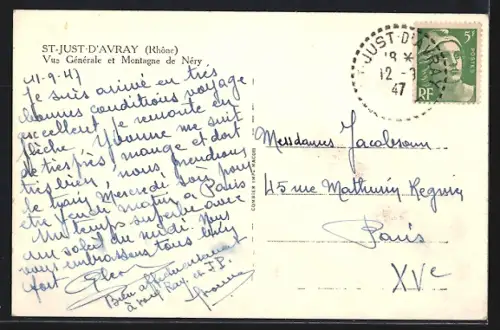 ST-JUST-D'AVRAY (Rhône)
Vue Générale et Montagne de Néry
11-9-47
Je suis arrivé en très
bonnes conditions voyage
excellent, je remonte en
flèche. Yvonne me suit
de très près, mange et dort
très bien, nous prendrons
le train Mercredi soir pour
être jeudi matin à Paris
Un temps superbe avec
un soleil du midi. Nous
vous embrassons tous bien
fort.
Bien affectueusement
à vous, Ray. et J.P.
Yvonne
COMBIER IMP. MACON
ST JUST-D'AVRAY
18 *
12-9
47
5F
POSTES
RF
Mesdames Jacobsoun
45 rue Mathurin Regnier
Paris
XVe